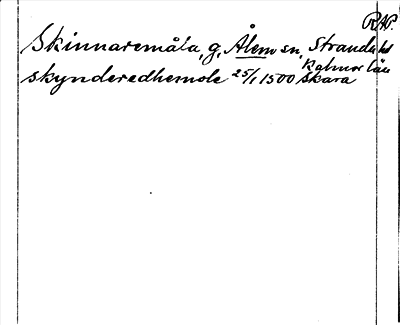 RAP.
Skinnaremåla, g, Ålem sn, Stranda hd
Kalmar län
skynderedhemole 25/1 1500 Skara